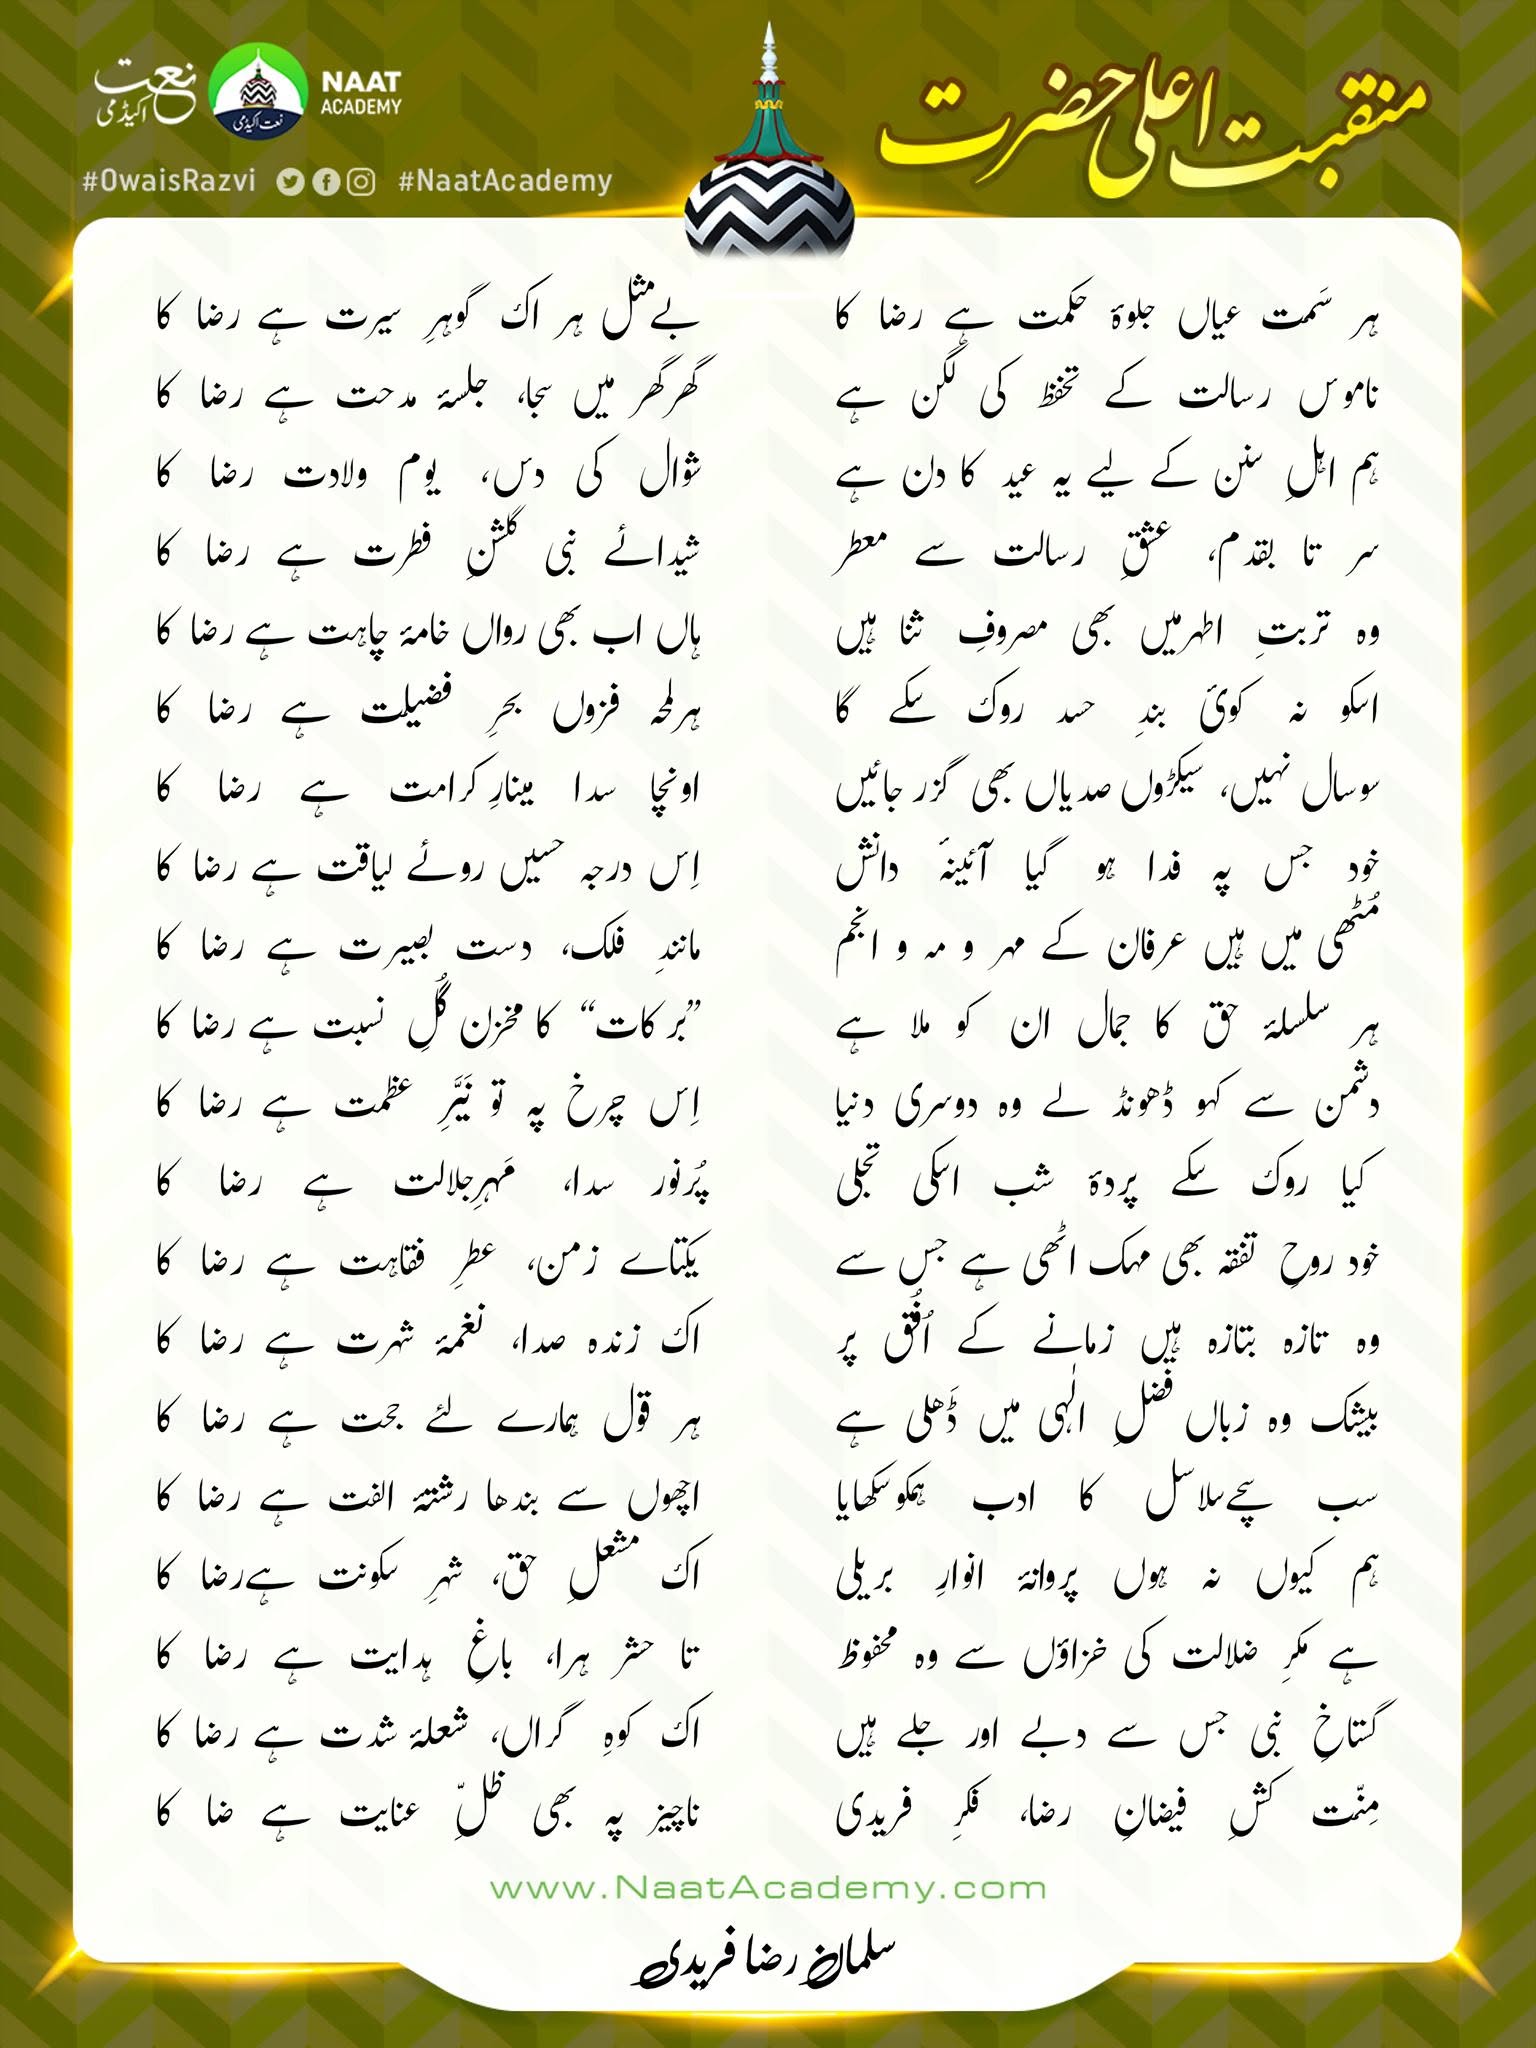 نعت اکیڈمی
نعت اکیڈمی
NAAT
ACADEMY
#OwaisRazvi #NaatAcademy
منقبت اعلیٰ حضرت
ہر سَمت عیاں جلوۂ حکمت ہے رضا کا
بےمثل ہر اک گوہرِ سیرت ہے رضا کا
ناموس رسالت کے تحفظ کی لگن ہے
گھرگھر میں سجا، جلسۂ مدحت ہے رضا کا
ہم اہلِ سنن کے لیے یہ عید کا دن ہے
شوال کی دس، یوم ولادت رضا کا
سر تا بقدم، عشقِ رسالت سے معطر
شیدائے نبی گلشنِ فطرت ہے رضا کا
وہ تربتِ اطہرمیں بھی مصروفِ ثنا ہیں
ہاں اب بھی رواں خامۂ چاہت ہے رضا کا
اسکو نہ کوئ بندِ حسد روک سکے گا
ہرلمحہ فزوں بحرِ فضیلت ہے رضا کا
سوسال نہیں، سیکڑوں صدیاں بھی گزر جائیں
اونچا سدا مینارِکرامت ہے رضا کا
خود جس پہ فدا ہو گیا آئینۂ دانش
اِس درجہ حسیں روئے لیاقت ہے رضا کا
مُٹھی میں ہیں عرفان کے مہر و مہ و انجم
مانندِ فلک، دست بصیرت ہے رضا کا
ہر سلسلۂ حق کا جمال ان کو ملا ہے
”برکات“ کا مخزن گُلِ نسبت ہے رضا کا
دشمن سے کہو ڈھونڈ لے وہ دوسری دنیا
اِس چرخ پہ تو نَیَّرِ عظمت ہے رضا کا
کیا روک سکے پردۂ شب اسکی تجلی
پُرنور سدا، مَہرِجلالت ہے رضا کا
خود روحِ تفقہ بھی مہک اٹھی ہے جس سے
یکتاے زمن، عطرِ فقاہت ہے رضا کا
وہ تازہ بتازہ ہیں زمانے کے اُفُق پر
اک زندہ صدا، نغمۂ شہرت ہے رضا کا
بیشک وہ زباں فضلِ الٰہی میں ڈَھلی ہے
ہر قول ہمارے لئے حجت ہے رضا کا
سب سچےسلاسل کا ادب ہمکوسکھایا
اچھوں سے بندھا رشتۂ الفت ہے رضا کا
ہم کیوں نہ ہوں پروانۂ انوارِ بریلی
اک مشعلِ حق، شہرِ سکونت ہےرضا کا
ہے مکرِ ضلالت کی خزاؤں سے وہ محفوظ
تا حشر ہرا، باغِ ہدایت ہے رضا کا
گستاخِ نبی جس سے دبے اور جلے ہیں
اک کوہِ گراں، شعلۂ شدت ہے رضا کا
مِنّت کشِ فیضانِ رضا، فکرِ فریدی
ناچیز پہ بھی ظلِّ عنایت ہے ضا کا
www.NaatAcademy.com
سلمان رضا فریدی